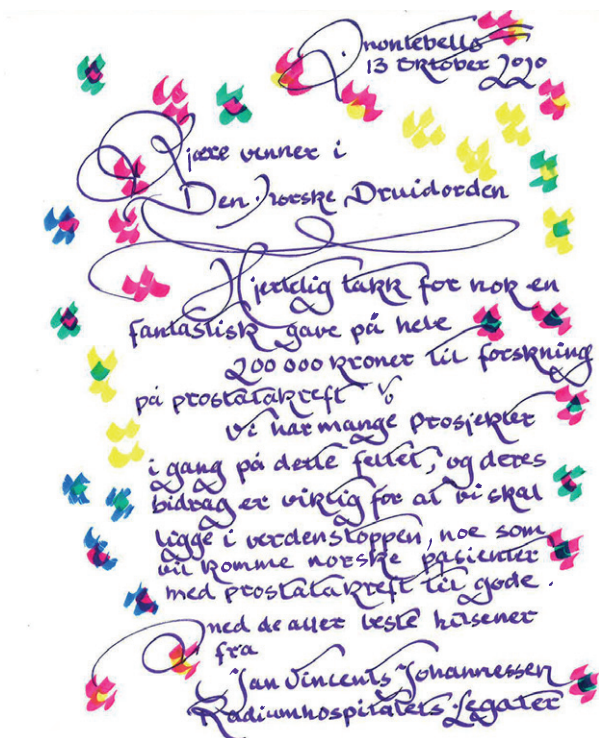 Montebello
13 Oktober 2020
Kjære venner i
Den norske Druidorden
Hjertelig takk for nok en
fantastisk gave på hele
200 000 kroner til forskning
på prostatakreft !
Vi har mange prosjekter
i gang på dette feltet, og deres
bidrag er viktig for at vi skal
ligge i verdenstoppen, noe som
vil komme norske pasienter
med prostatakreft til gode.
Med de aller beste hilsener
fra
Jan Vincents Johannessen
Radiumhospitalets Legater